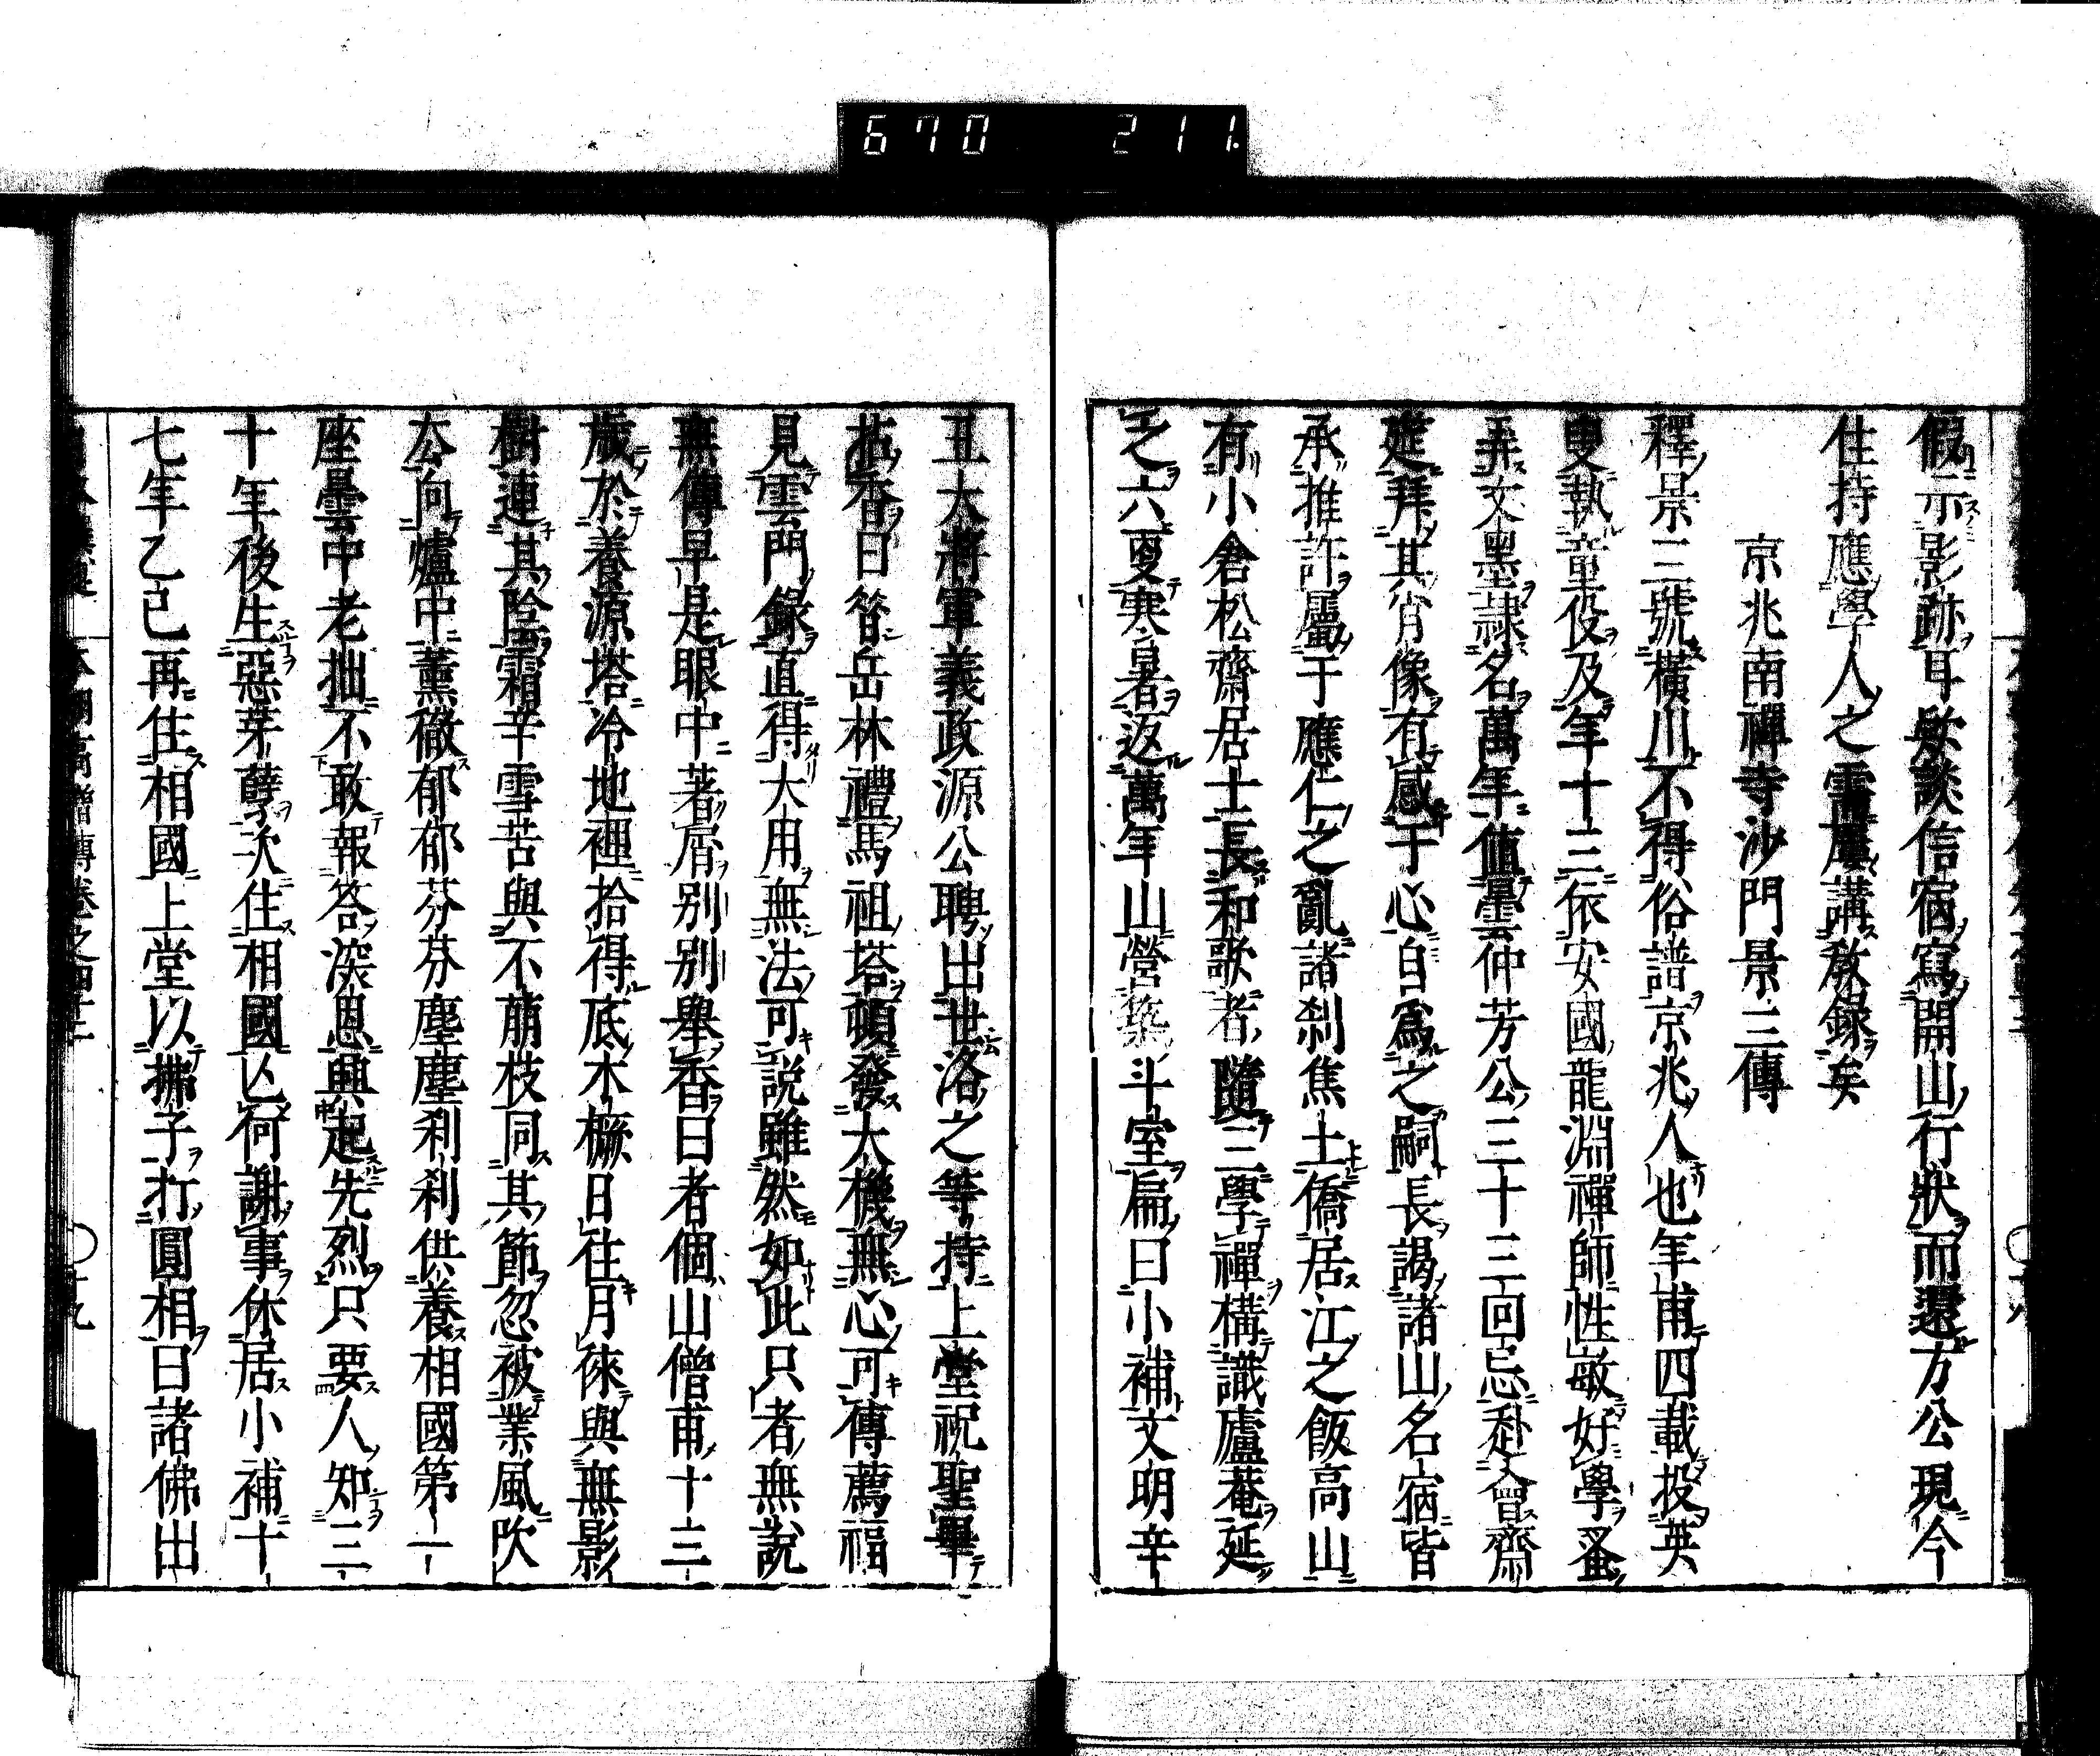 670 211
假示影跡耳歟談信宿寫開山行狀而還方公現今
住持應學人之需屢講教錄矣
京兆南禪寺沙門景三傳
釋景三號橫川不得俗譜京兆人也年甫四載投英
叟執童役及年十三依安國龍淵禪師性敏好學蚤
弄文墨隷名萬年値曇仲芳公三十三回忌赴會齋
筵拜其肖像有感于心自爲之嗣長謁諸山名宿皆
承推許屬于應仁之亂諸刹焦土僑居江之飯高山
有小倉松齋居士長和歌者隨三學禪構識廬菴延
之六更寒暑返萬年山營築斗室扁曰小補文明辛
丑大將軍義政源公聘出世洛之等持上堂祝聖畢
拈香曰答岳林禮馬祖塔頓發大機無心可傳薦福
見雲門錄直得大用無法可説雖然如此只者無説
無傳早是眼中著屑別別擧香曰者個山僧甫十三
歲於養源塔冷地裡拾得底木橛日往月徠與無影
樹連其陰霜辛雪苦與不萠枝同其節忽被業風吹
公向爐中薰徹郁郁芬芬塵塵利刹供養相國第二
座曇中老拙不敢報答深恩興起先烈只要人知三
十年後生惡芽孽次住相國亾何謝事休居小補十
七年乙己再住相國上堂以拂子打圓相曰諸佛出
高僧傳卷之四十二
十九